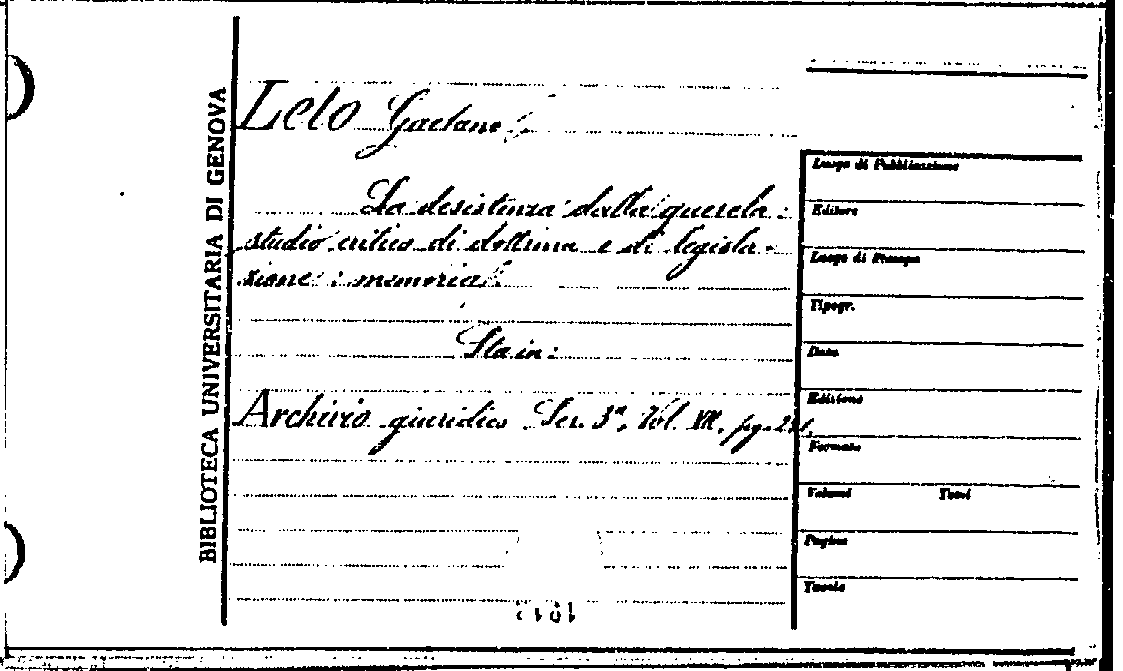 BIBLIOTECA UNIVERSITARIA DI GENOVA
Leto Gaetano
La desistenza dalla querela:
studio critico di dottrina e di legisla-
zione: memoria.
Sta in:
Archivio giuridico Ser. 3ª, Vol. VII, pg.
Luogo di Pubblicazione
Editore
Luogo di Stampa
Tipogr.
Data
Edizione
Formato
Volumi Tomi
Pagine
Tavole